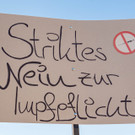 Striktes
Nein zur
Impfpflicht